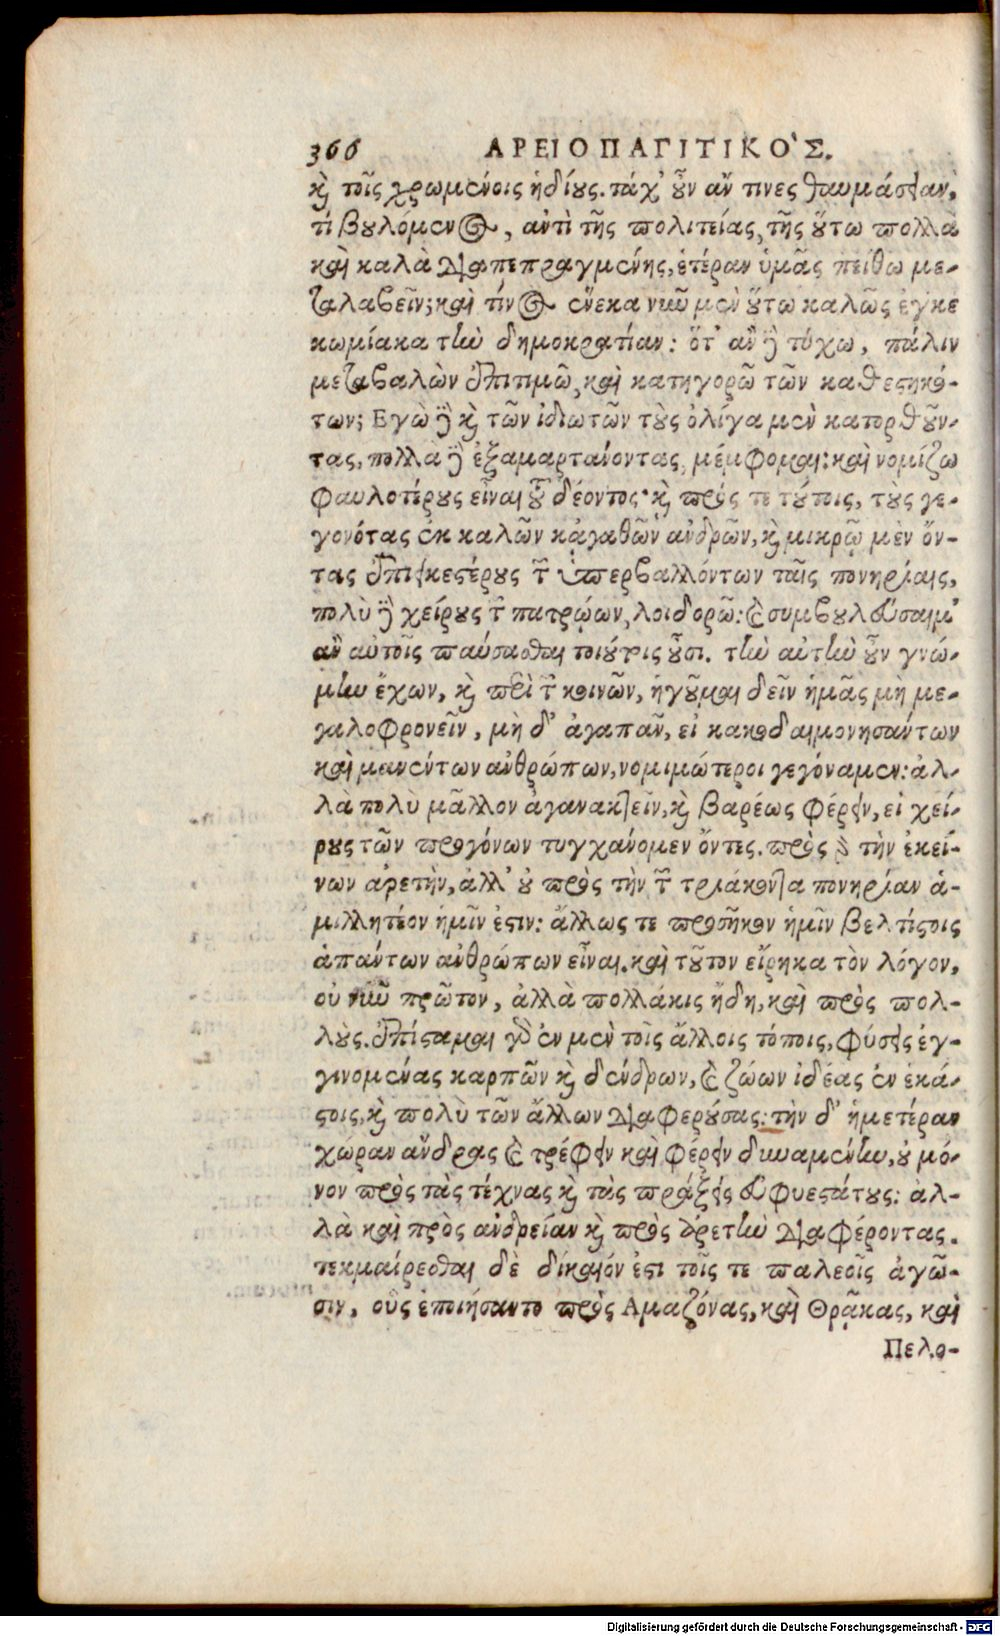 366 ΑΡΕΙΟΠΑΓΙΤΙΚΟ'Σ.
καὶ τοῖς χρωμένοις ἡδίους. τάχ' οὖν ἄν τινες θαυμάσειαν,
τί βουλόμενος, ἀντὶ τῆς πολιτείας, τῆς οὕτω πολλὰ
καὶ καλὰ διαπεπραγμένης, ἑτέραν ὑμᾶς πείθω με-
ταλαβεῖν; καὶ τίνος ἕνεκα νῦν μὲν οὕτω καλῶς ἐγκε
κωμίακα τὴν δημοκρατίαν: ὅτ' ἂν δὲ τύχω, πάλιν
μεταβαλὼν ἐπιτιμῶ, καὶ κατηγορῶ τῶν καθεστηκό-
των; Εγὼ δὲ καὶ τῶν ἰδιωτῶν τοὺς ὀλίγα μὲν κατορθοῦν-
τας, πολλὰ δὲ ἐξαμαρτάνοντας, μέμφομαι: καὶ νομίζω
φαυλοτέρους εἶναι τοῦ δέοντος· καὶ πρός τε τούτοις, τοὺς γε-
γονότας ἐκ καλῶν κἀγαθῶν ἀνδρῶν, καὶ μικρῷ μὲν ὄν-
τας ἐπιεικεστέρους τῶν ὑπερβαλλόντων ταῖς πονηρίαις,
πολὺ δὲ χείρους τῶν πατρῴων, λοιδορῶ: καὶ συμβουλεύσαιμ'
ἂν αὐτοῖς παύσασθαι τοιούτοις οὖσι. τὴν αὐτὴν οὖν γνώ-
μην ἔχων, καὶ περὶ τῶν κοινῶν, ἡγοῦμαι δεῖν ἡμᾶς μὴ με-
γαλοφρονεῖν, μὴ δ' ἀγαπᾶν, εἰ κακοδαιμονησάντων
καὶ μανέντων ἀνθρώπων, νομιμώτεροι γεγόναμεν: ἀλ-
λὰ πολὺ μᾶλλον ἀγανακτεῖν, καὶ βαρέως φέρειν, εἰ χεί-
ρους τῶν προγόνων τυγχάνομεν ὄντες. πρὸς γὰρ τὴν ἐκεί-
νων ἀρετὴν, ἀλλ' οὐ πρὸς τὴν τῶν τριάκοντα πονηρίαν ἁ-
μιλλητέον ἡμῖν ἐστιν: ἄλλως τε προσῆκον ἡμῖν βελτίστοις
ἁπάντων ἀνθρώπων εἶναι. καὶ τοῦτον εἴρηκα τὸν λόγον,
οὐ νῦν πρῶτον, ἀλλὰ πολλάκις ἤδη, καὶ πρὸς πολ-
λούς. ἐπίσταμαι γὰρ ἐν μὲν τοῖς ἄλλοις τόποις, φύσεις ἐγ-
γινομένας καρπῶν καὶ δένδρων, καὶ ζώων ἰδέας ἐν ἑκά-
στοις, καὶ πολὺ τῶν ἄλλων διαφερούσας: τὴν δ' ἡμετέραν
χώραν ἄνδρας καὶ τρέφειν καὶ φέρειν δυναμένην, οὐ μό-
νον πρὸς τὰς τέχνας καὶ τὰς πράξεις εὐφυεστάτους: ἀλ-
λὰ καὶ πρὸς ἀνδρείαν καὶ πρὸς ἀρετὴν διαφέροντας.
τεκμαίρεσθαι δὲ δίκαιόν ἐστι τοῖς τε παλεοῖς ἀγῶ-
σιν, οὓς ἐποιήσαντο πρὸς Αμαζόνας, καὶ Θρᾷκας, καὶ
Πελο-
Digitalisierung gefördert durch die Deutsche Forschungsgemeinschaft - DFG